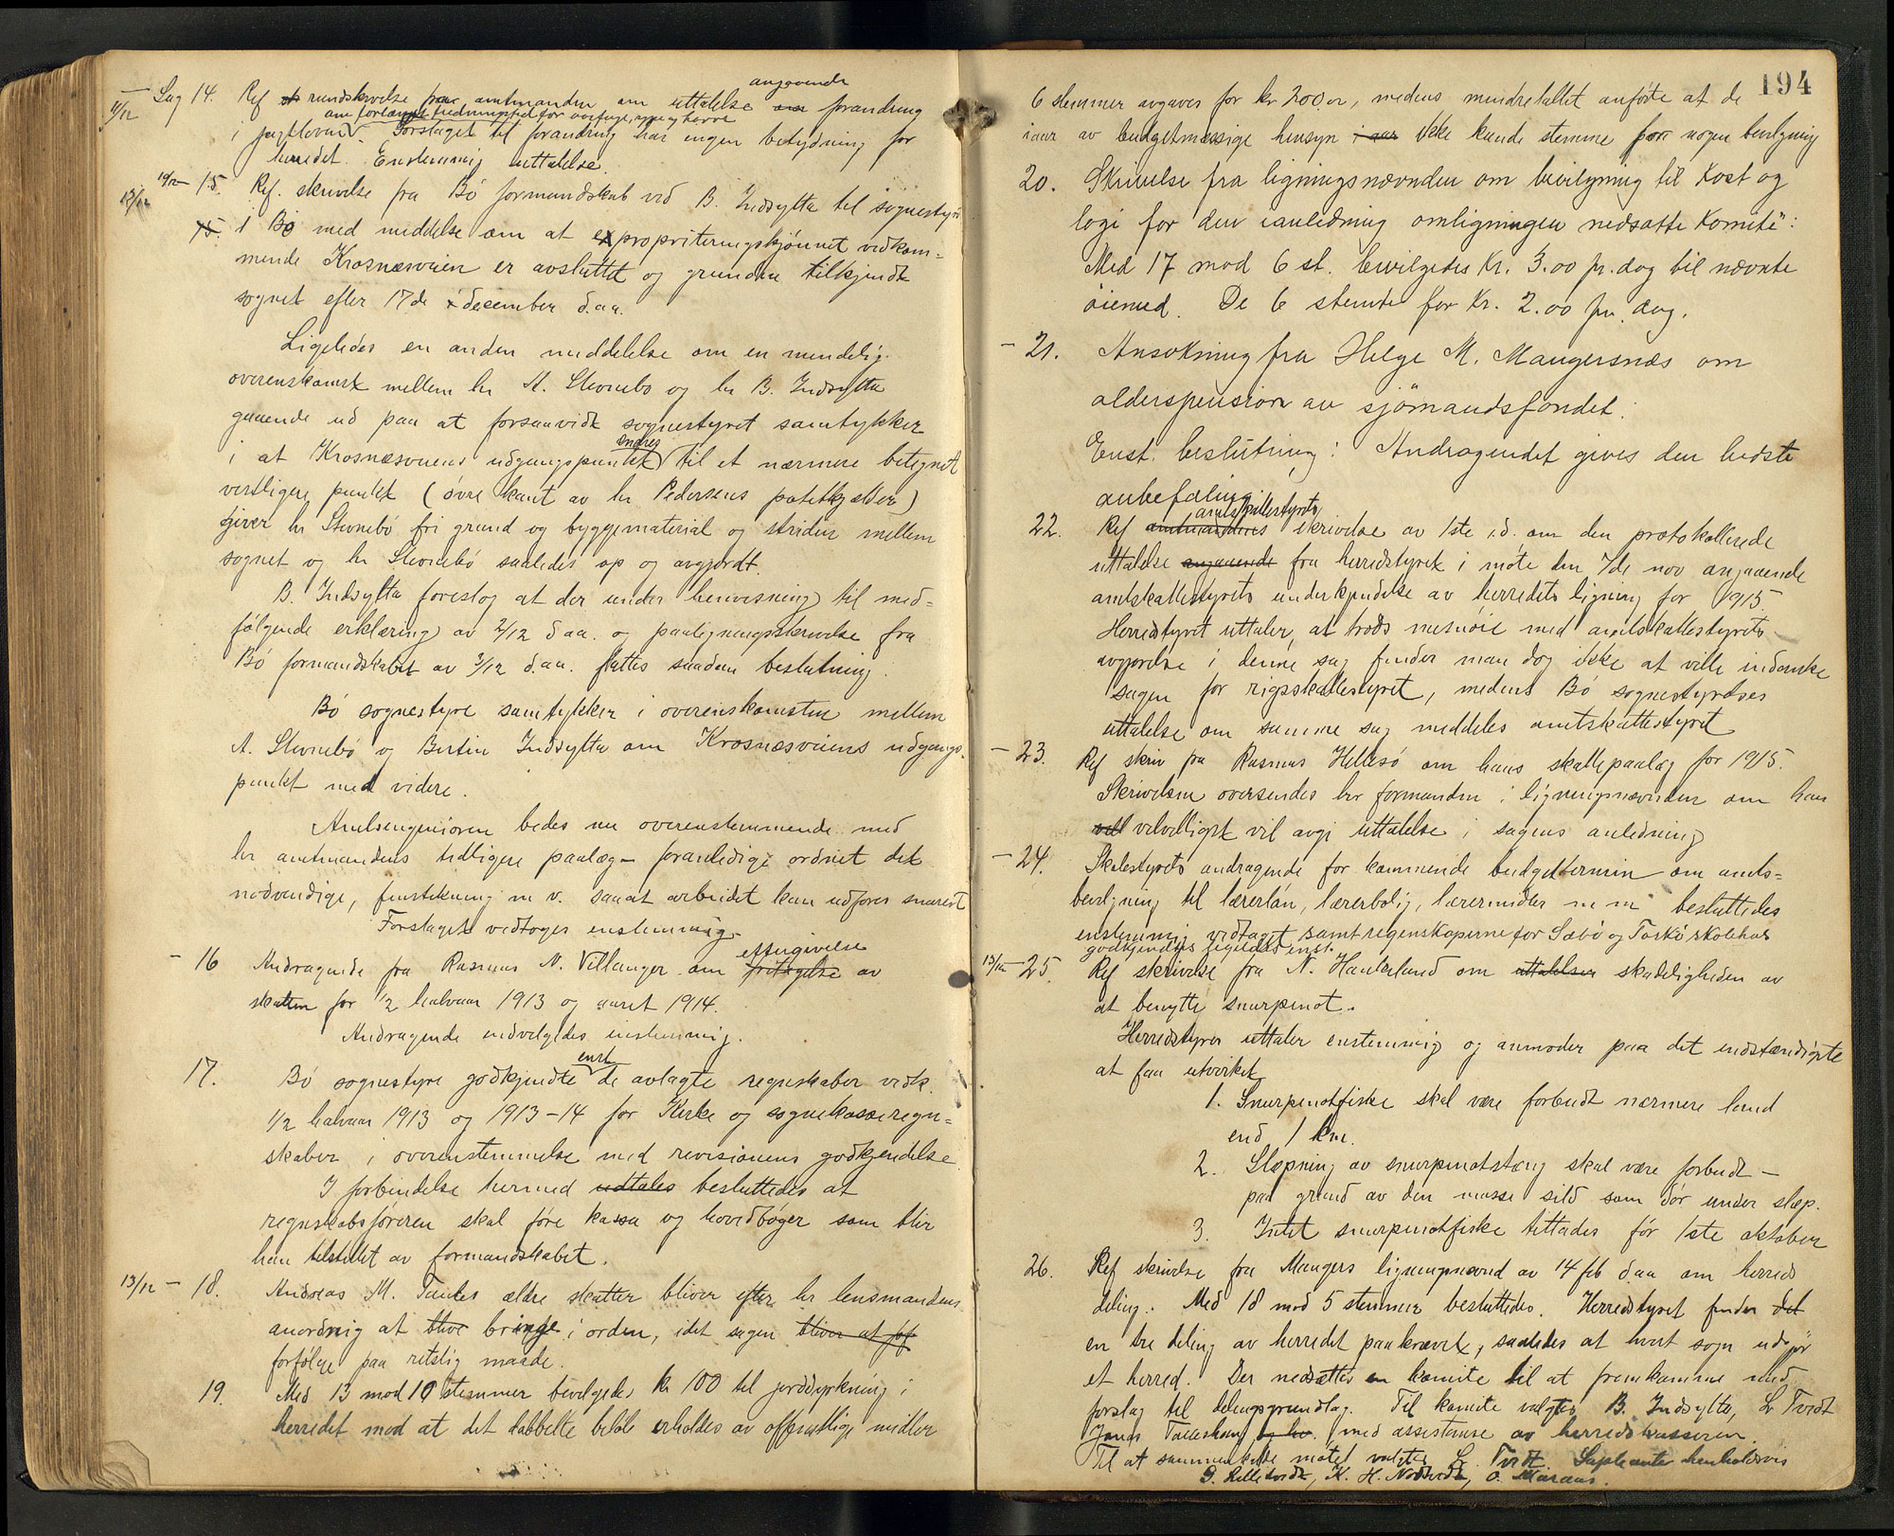 11/12
Sag 14. Ref rundskrivelse fra amtmanden om uttalelse angaaende forandring
om forlænget fredningstid for aarfugl, røi og harre
i jagtloven. Forslaget til forandring har ingen betydning for
herredet. Enstemmig uttalelse.
15. Ref. skrivelse fra Bö formandskab ved B. Indsylta til sognestyret
i Bö med meddelse om at expropriteringskjönnet vedkom=
mende Krosnæsveien er avsluttet og grunden tilkjendt
sognet efter 17de december d.aa.
Ligeledes en anden meddelelse om en mindelig
overenskomst mellem hr A. Stornebö og hr B. Indsylta
gaaende ud paa at forsaavidt sognestyret samtykker
i at Krosnæsveiens udgangspunkt endres til et nærmere betegnet
vestligere punkt (övre kant av hr Pedersens potetkjælder)
giver hr Stornebö fri grund og byggematerial og striden mellem
sognet og hr Stornebö saaledes op og avgjordt.
B. Indsylta foreslog at der under henvisning til med=
fölgende erklæring av 2/12 d aa. og paaligningsskrivelse fra
Bö formandskabet av 3/12 d.aa. fattes saadan beslutning.
Bö sognestyre samtykker i overenskomsten mellem
A. Stornebö og Bertin Indsylta om Krosnæsveiens udgangs
punkt med videre.
Amtsingeniören bedes nu overenstemmende med
hr amtmandens tidligere paalæg foranledige ordnet det
nödvendige, finstikning m v. saaat arbeidet kan udføres snarest
Forslaget vedtoges enstemmig.
- 16 Andragende fra Rasmus N. Vetlanger om eftergivelse av
skatten for 1/2 halvaar 1913 og aaret 1914.
Andragende indvilgedes enstemmig.
17. Bö sognestyre godkjendte enst de avlagte regnskaber vedk.
1/2 halvaar 1913 og 1913-14 for Kirke og sognekasseregn=
skaber i overenstemmelse med revisionens godkjendelse
I forbindelse hermed udtales besluttedes at
regnskabsföreren skal före kassa og hovedböger som blir
han tilstillet av formandskabet.
13/12 - 18. Andreas M. Toules ældre skatter bliver efter hr lensmandens
anordnig at blive bringe i orden, idet sagen bliver at
forfölge paa retslig maade.
19. Med 13 mod 10 stemmer bevilgedes kr 100 til jorddyrkning i
herredet mod at det dobbelte belöb erholdes av offentlige midler
194
6 stemmer avgaves for kr 200,00, medens mindretallet anförte at de
iaar av budgetmæssige hensyn i aar ikke kunde stemme for nogen bevilgning
20. Skrivelse fra ligningsnævnden om bevilgning til Kost og
logi for den ianledning omligningen nedsatte Komite":
Med 17 mod 6 st. bevilgedes Kr. 3.00 pr. dag til nævnte
öiemed. De 6 stemte for Kr. 2.00 pr. dag.
- 21. Ansökning fra Helge M. Mangersnæs om
alderspension av sjömandsfondet.
Enst. beslutning: Andragendet gives den bedste
anbefaling.
22. Ref amtmandens amtskattestyrets skrivelse av 1ste d. om den protokollerede
uttalelse angaaende fra herredstyret i möte den 7de nov angaaende
amtskattestyrets underkjendelse av herredets ligning for 1915
Herredstyret uttaler, at trods misnöie med amtskattestyrets
avgjørelse i denne sag finder man dog ikke at ville indanke
sagen for rigsskattestyret, medens Bö sognestyres
uttalelse om samme sag meddeles amtskattestyret
- 23. Ref skriv fra Rasmus Hellesö om hans skattepaalæg for 1915.
Skrivelsen oversendes hr formanden i ligningsnævnden om han
vill velvilligst vil avgi uttalelse i sagens anledning
- 24. Skolestyrets andragende for kommende budgettermin om amts=
bevilgning til lærerlön, lærerbolig, læremidler m m besluttedes
enstemmig vedtaget samt regenskaperne for Sæbö og Toskö skolehus
godkjendtes ligeledes enst.
13/12 - 25. Ref skrivelse fra N. Haukeland om uttalelsen skadeligheden av
at benytte snurpenot.
Herredstyret uttaler enstemmig og anmoder paa det indstændigste
at faa utvirket
1. Snurpenotfiske skal være forbudt nærmere land
end 1 km.
2. Slæpning av snurpenotstæng skal være forbudt -
paa grund av den masse sild som dör under slæp.
3. Intet snurpenotfiske tillades för 1ste oktober
26. Ref skrivelse fra Mangers ligningsnævnd av 14 feb d.aa om herreds
deling. Med 18 mod 5 stemmer besluttedes. Herredstyret finder det
en tre deling av herredet paakrævet, saaledes at hvert sogn udgjör
et herred. Der nedsættes en komite til at fremkomme med
forslag til delingsgrundlag. Til komite valgtes B. Indsylta, L Tvedt
Jonas med assistense av herredskasseren.
Til at sammenkalde mötet valgtes L. Tvedt Suplianter henholdsvis